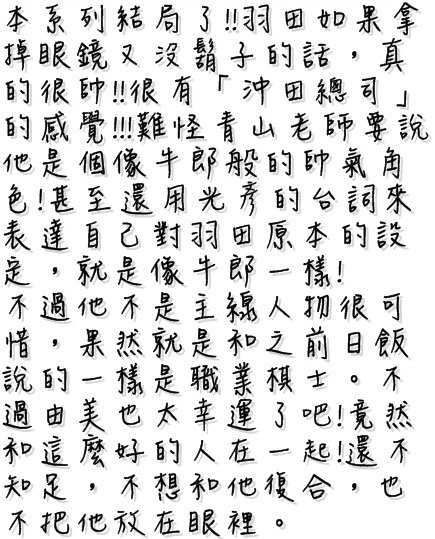 本系列結局了!!羽田如果拿
掉眼鏡又沒鬍子的話，真
的很帥!!很有「沖田總司」
的感覺!!!難怪青山老師要說
他是個像牛郎般的帥氣角
色!甚至還用光彥的台詞來
表達自己對羽田原本的設
定，就是像牛郎一樣!
不過他不是主線人物很可
惜，果然就是和之前日飯
說的一樣是職業棋士。不
過由美也太幸運了吧!竟然
和這麼好的人在一起!還不
知足，不想和他復合，也
不把他放在眼裡。